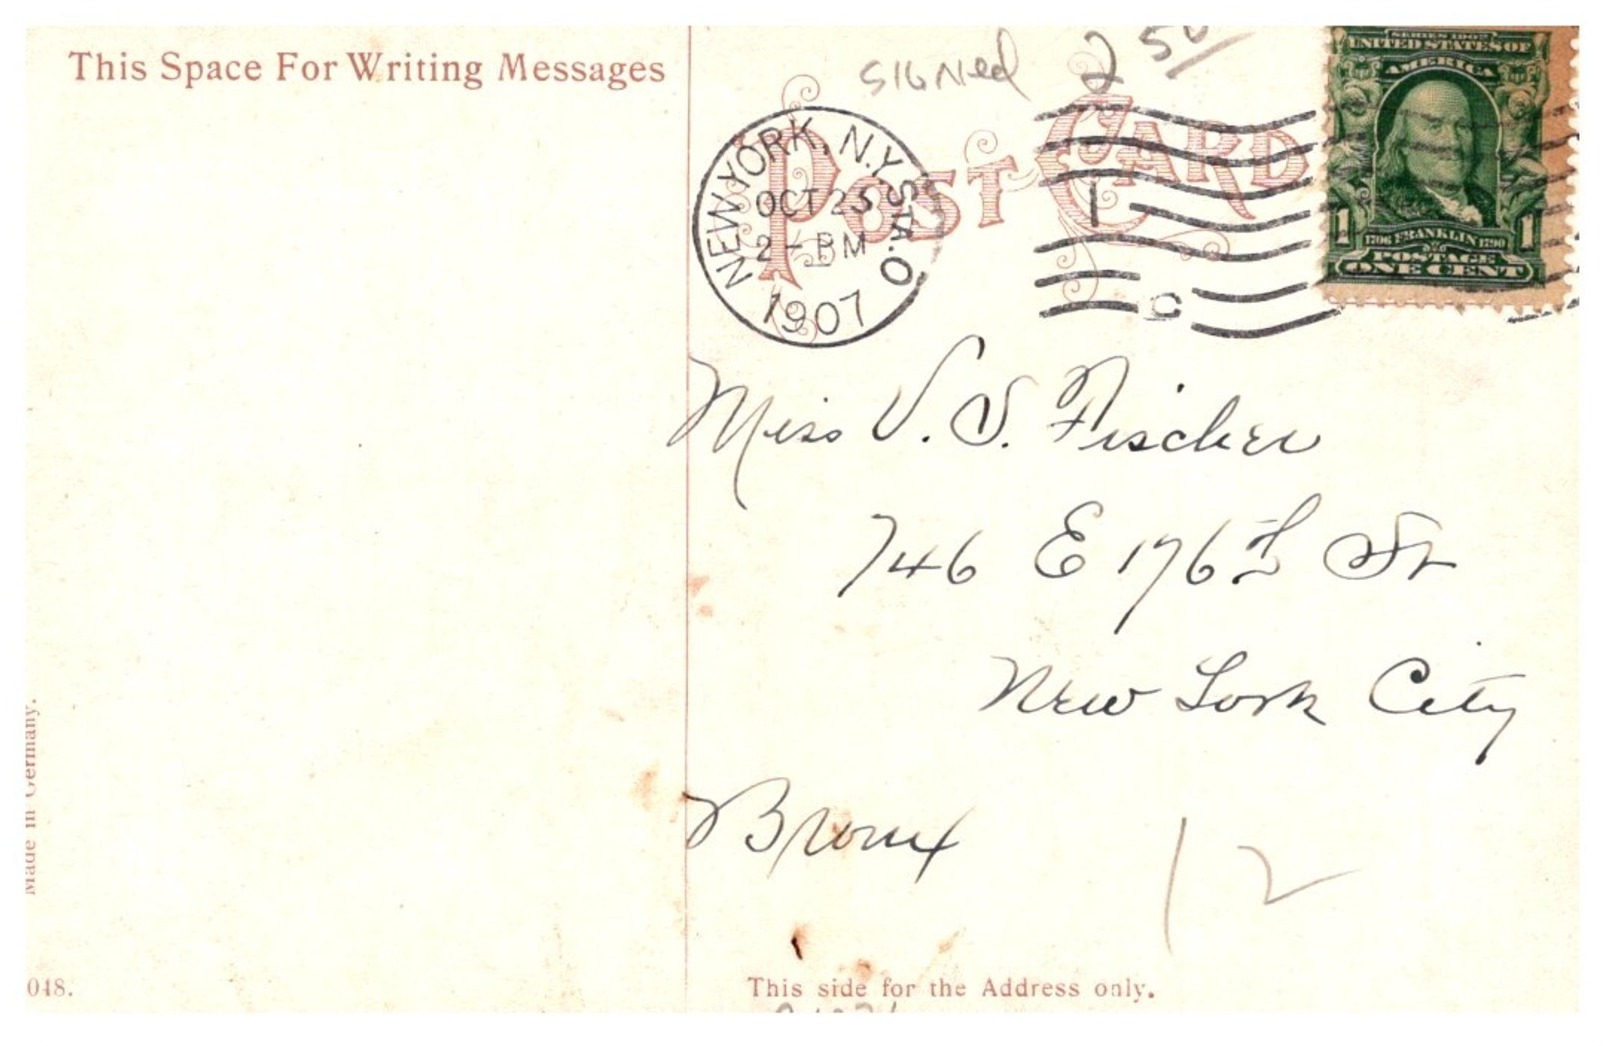 This Space For Writing Messages
signed 2 50
POST CARD
NEW YORK, N.Y. STA. O
OCT 25
2 - PM
1907
1
C
SERIES 1902
UNITED STATES OF
AMERICA
1 1
1706 FRANKLIN 1790
POSTAGE
ONE CENT
Miss V. S. Fischer
746 E 176th St
New York City
Bronx
12
Made in Germany.
048.
This side for the Address only.